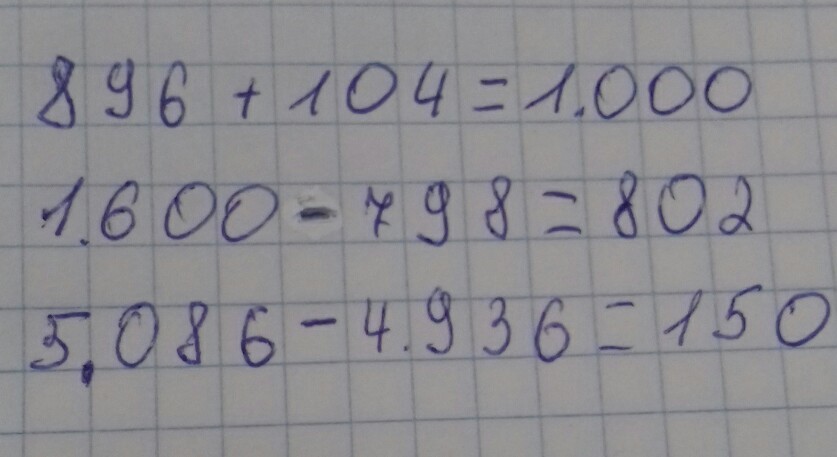 896 + 104 = 1.000
1.600 - 798 = 802
5.086 - 4.936 = 150